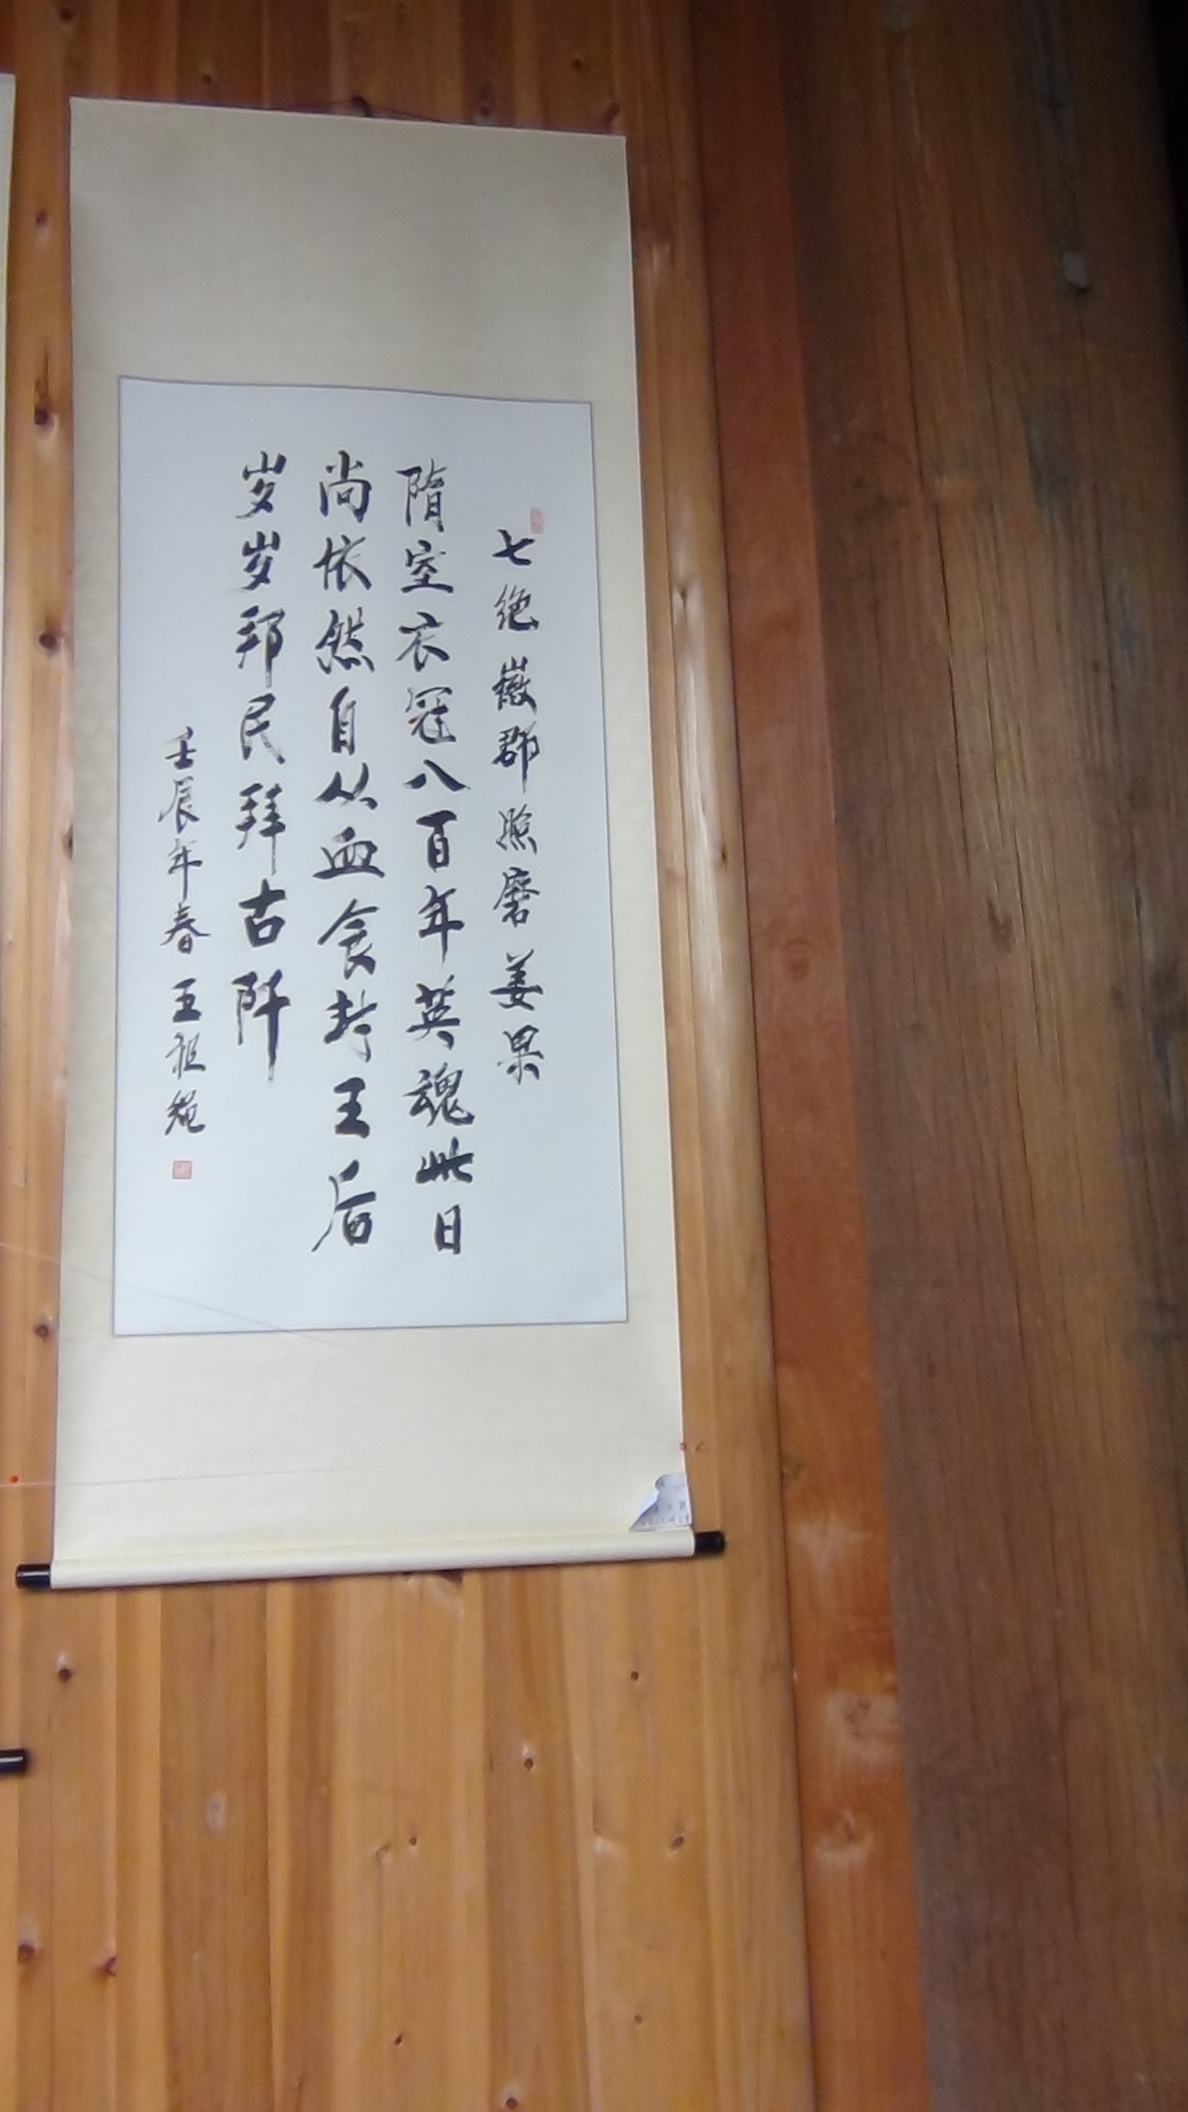 七绝徽郡照磨姜果
隋室衣冠八百年英魂此日
尚依然自从血食封王后
岁岁邦民拜古阡
壬辰年春王祖